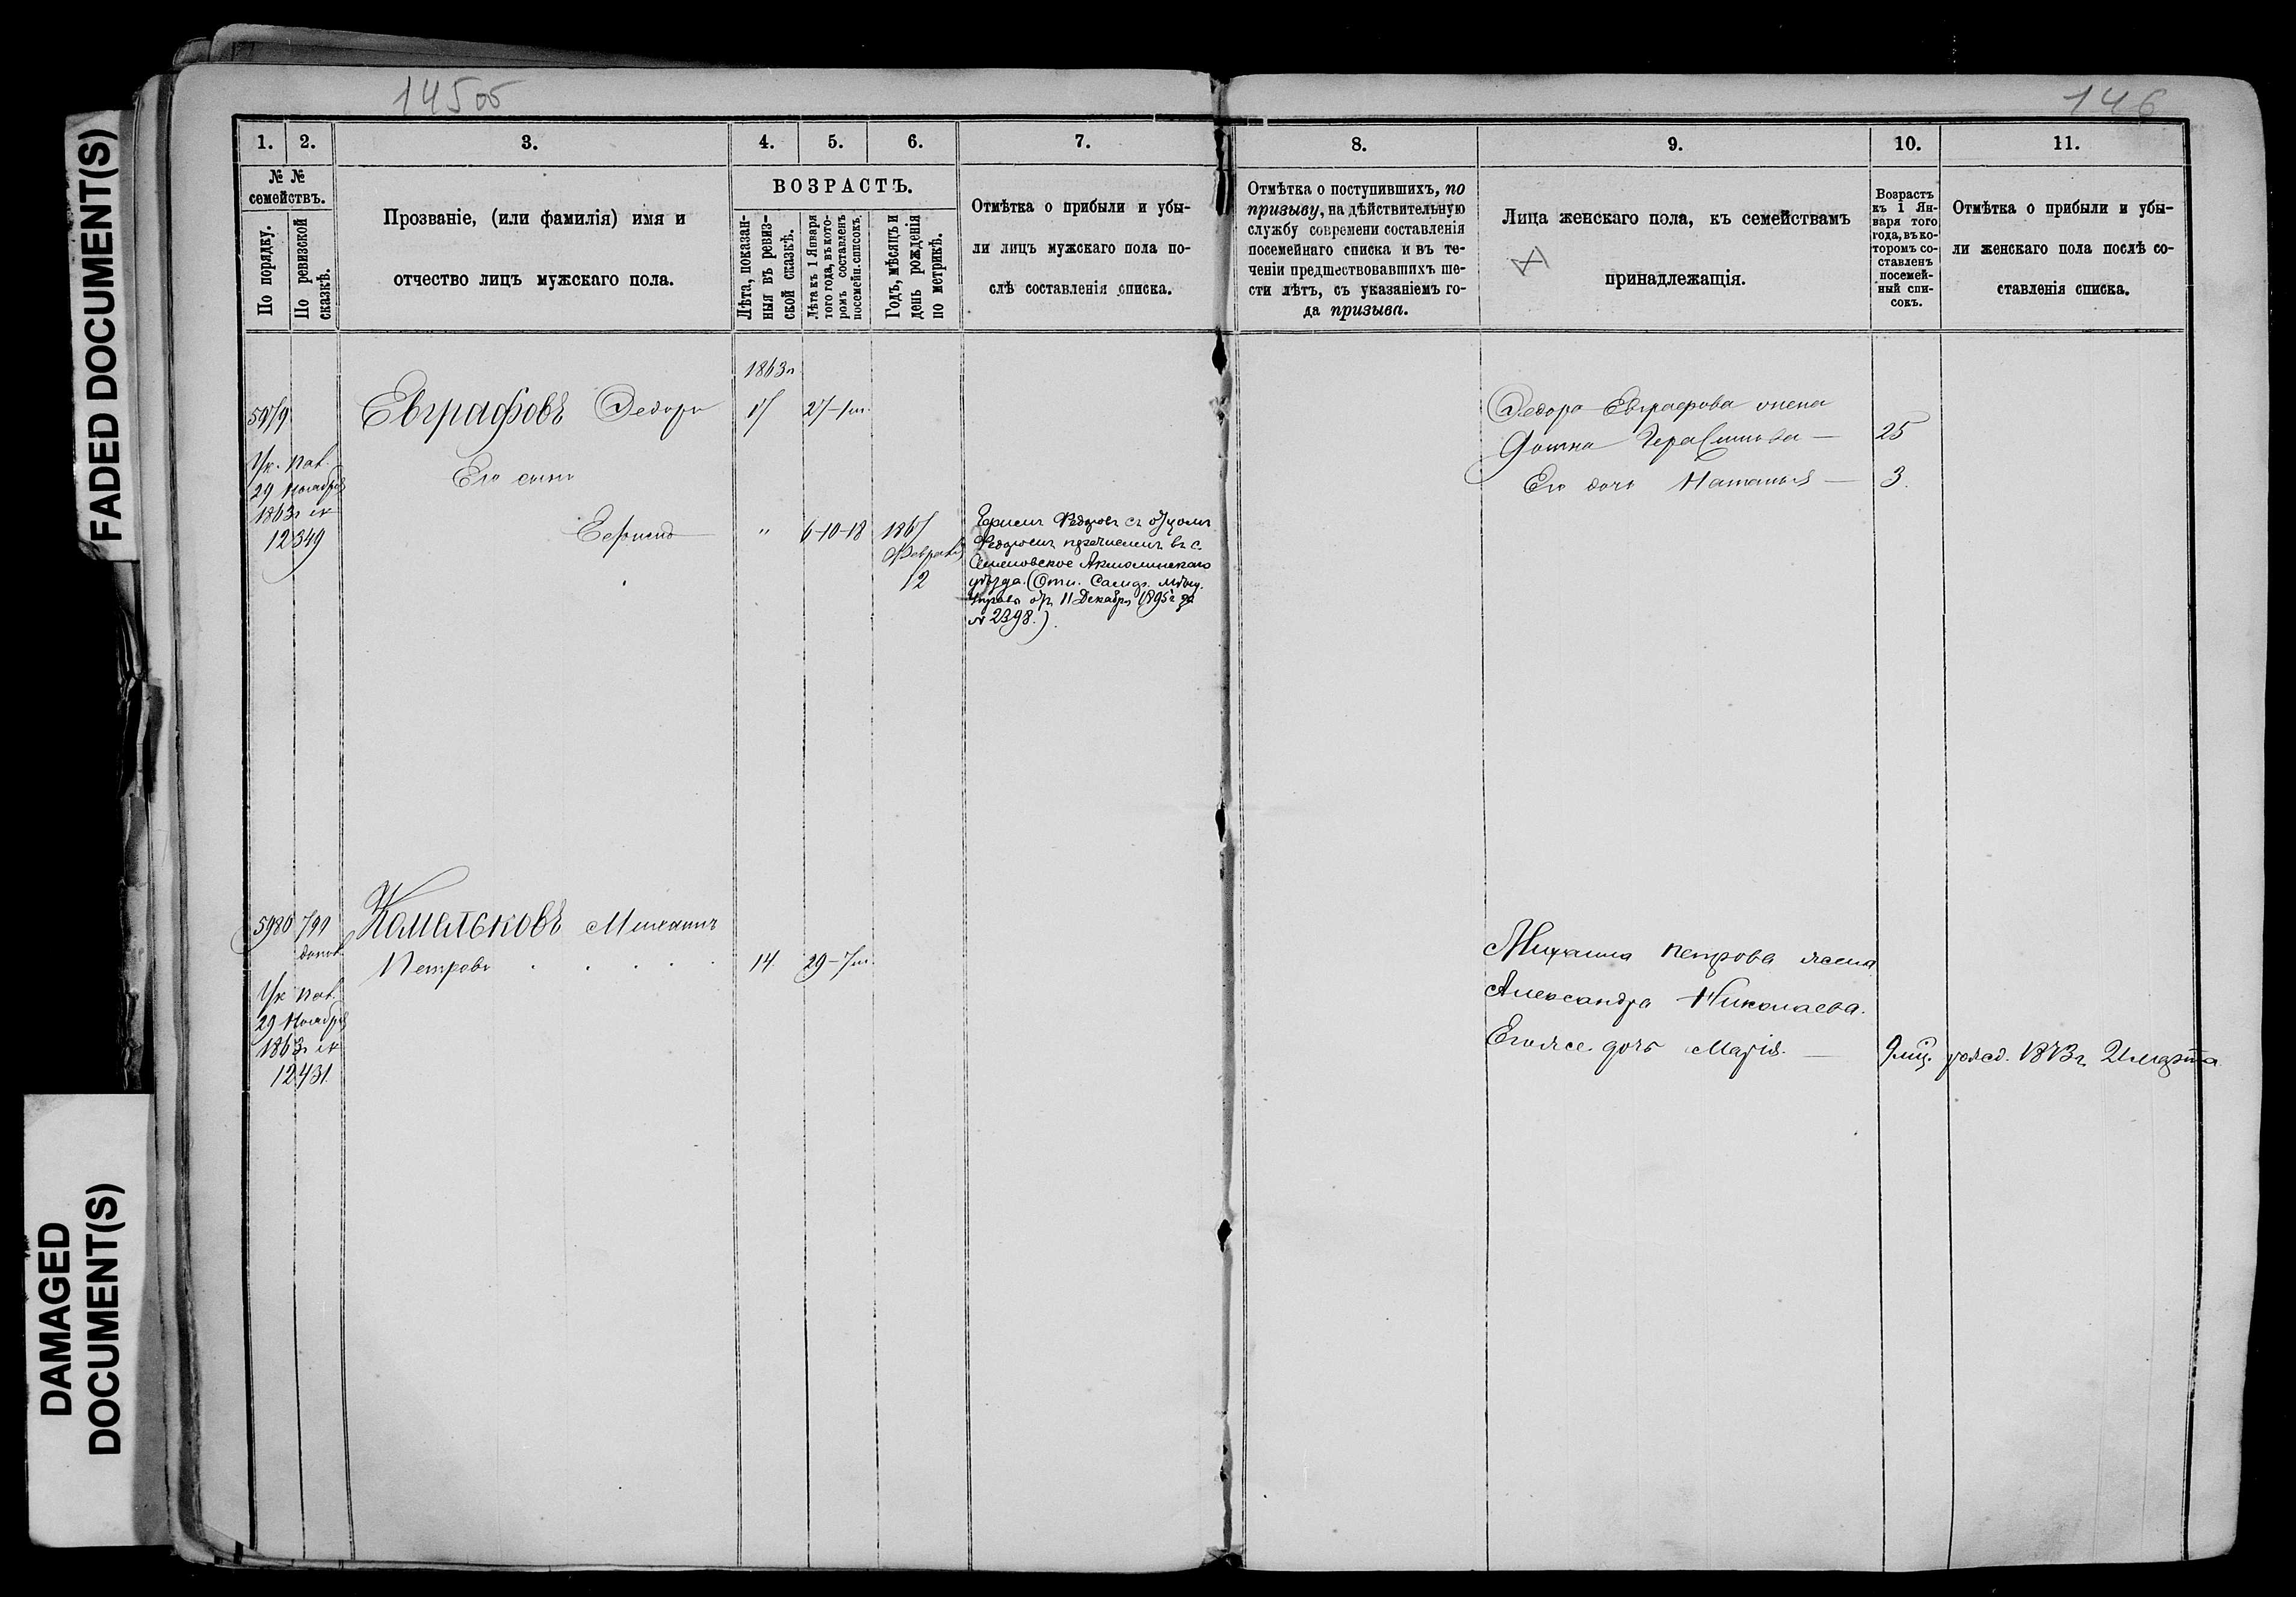 FADED DOCUMENT(S)
DAMAGED
DOCUMENT(S)
145об
146
1.
2.
3.
4.
5.
6.
7.
8.
9.
10.
11.
№ №
семействъ.
По порядку.
По ревизской
сказкѣ.
Прозваніе, (или фамилія) имя и
отчество лицъ мужскаго пола.
ВОЗРАСТЪ.
Лѣта, показан-
ныя въ ревиз-
ской сказкѣ.
Лѣта къ 1 Января
того года, въ кото-
ромъ составленъ
посемейн. списокъ.
Годъ, мѣсяцъ и
день рожденія
по метрикѣ.
Отмѣтка о прибыли и убы-
ли лицъ мужскаго пола по-
слѣ составленія списка.
Отмѣтка о поступившихъ, по
призыву, на дѣйствительную
службу современи составленія
посемейнаго списка и въ те-
ченіи предшествовавшихъ ше-
сти лѣтъ, съ указаніемъ го-
да призыва.
Лица женскаго пола, къ семействамъ
принадлежащія.
Возрастъ
къ 1 Ян-
варя того
года, въ ко-
торомъ со-
ставленъ
посемей-
ный спи-
сокъ.
Отмѣтка о прибыли и убы-
ли женскаго пола послѣ со-
ставленія списка.
1863г
5979
Евграфовъ Федоръ 17 27-1м.
Ук. Пал.
29 Ноября
1863г №
12349
Его сынъ
" 6-10-18 1867
Февраля
12
Федоромъ перечисленъ въ с.
Семеновское Акмолинскаго
уѣзда.
отъ 11 Декабря 1895г за
№ 2398.)
Федора Евграфова жена
25
Его дочь Наталья — 3.
5980 791
Михаилъ
Петровъ 14 29-7м.
Ук Пал.
29 Ноября
1863г №
12431
Михаила Петрова жена
Александра Николаева.
Егоже дочь Марія. — 9мц. рожд. 1873г 2 марта